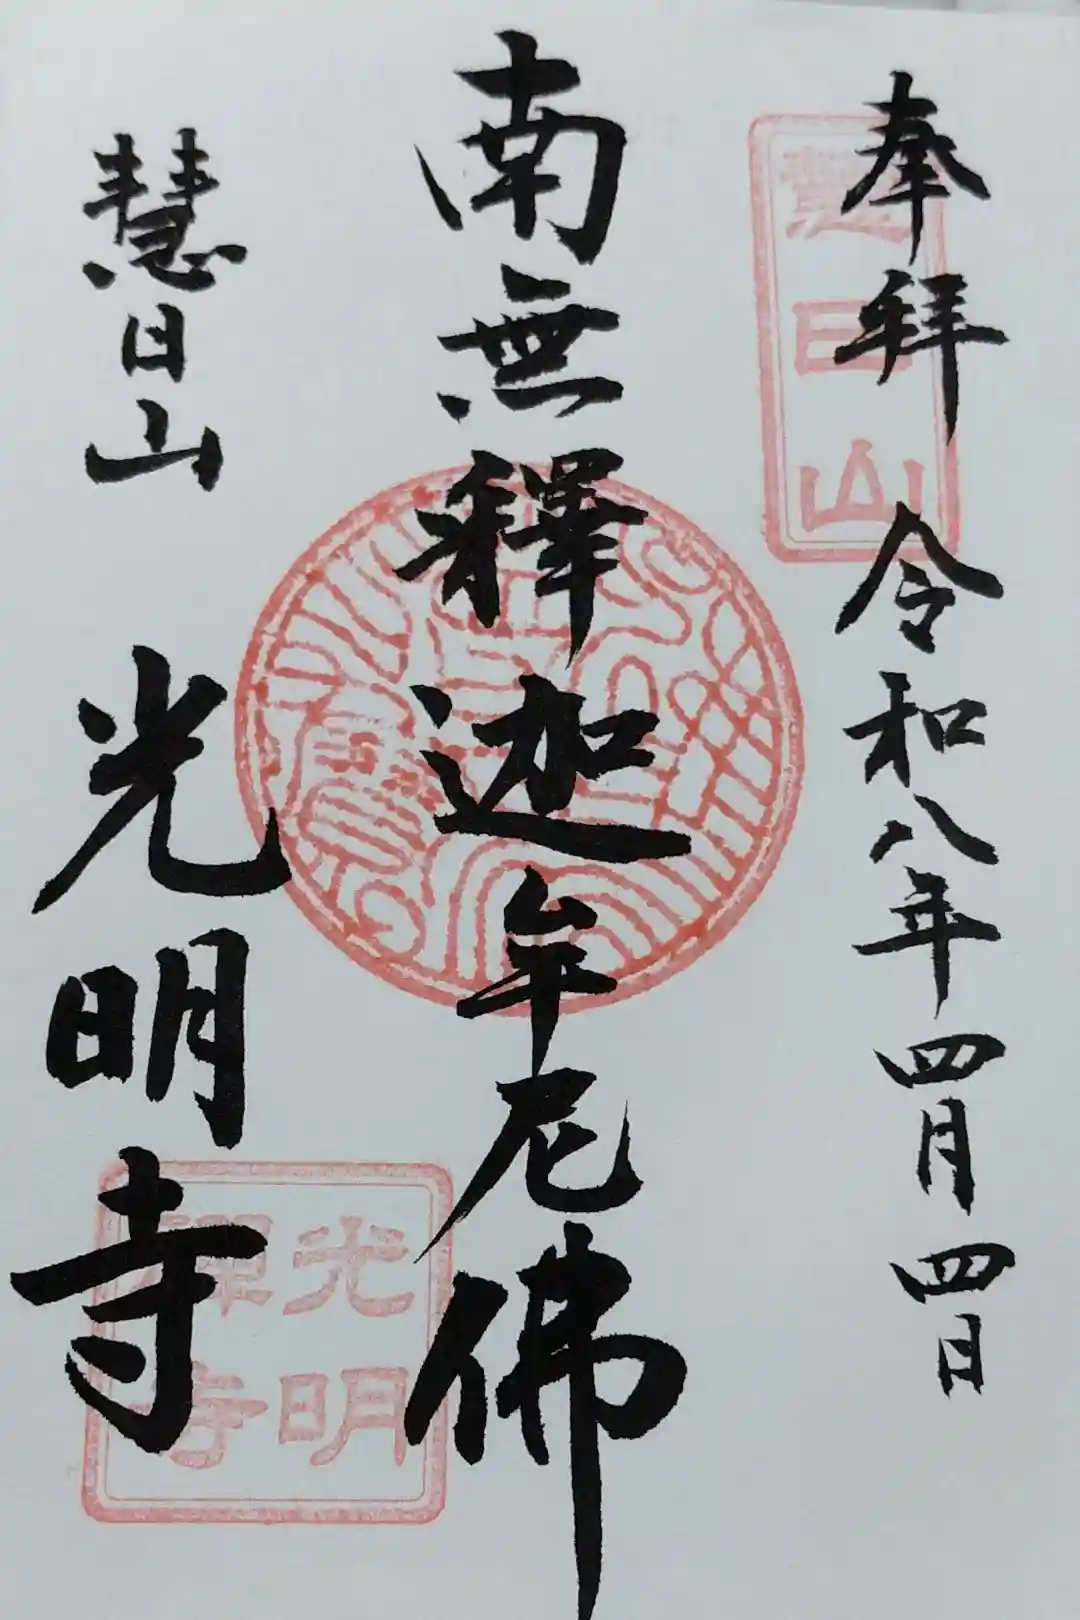 奉拝 令和八年四月四日
慧日山
南無釋迦牟尼佛
慧日山 光明寺
光明
禪寺